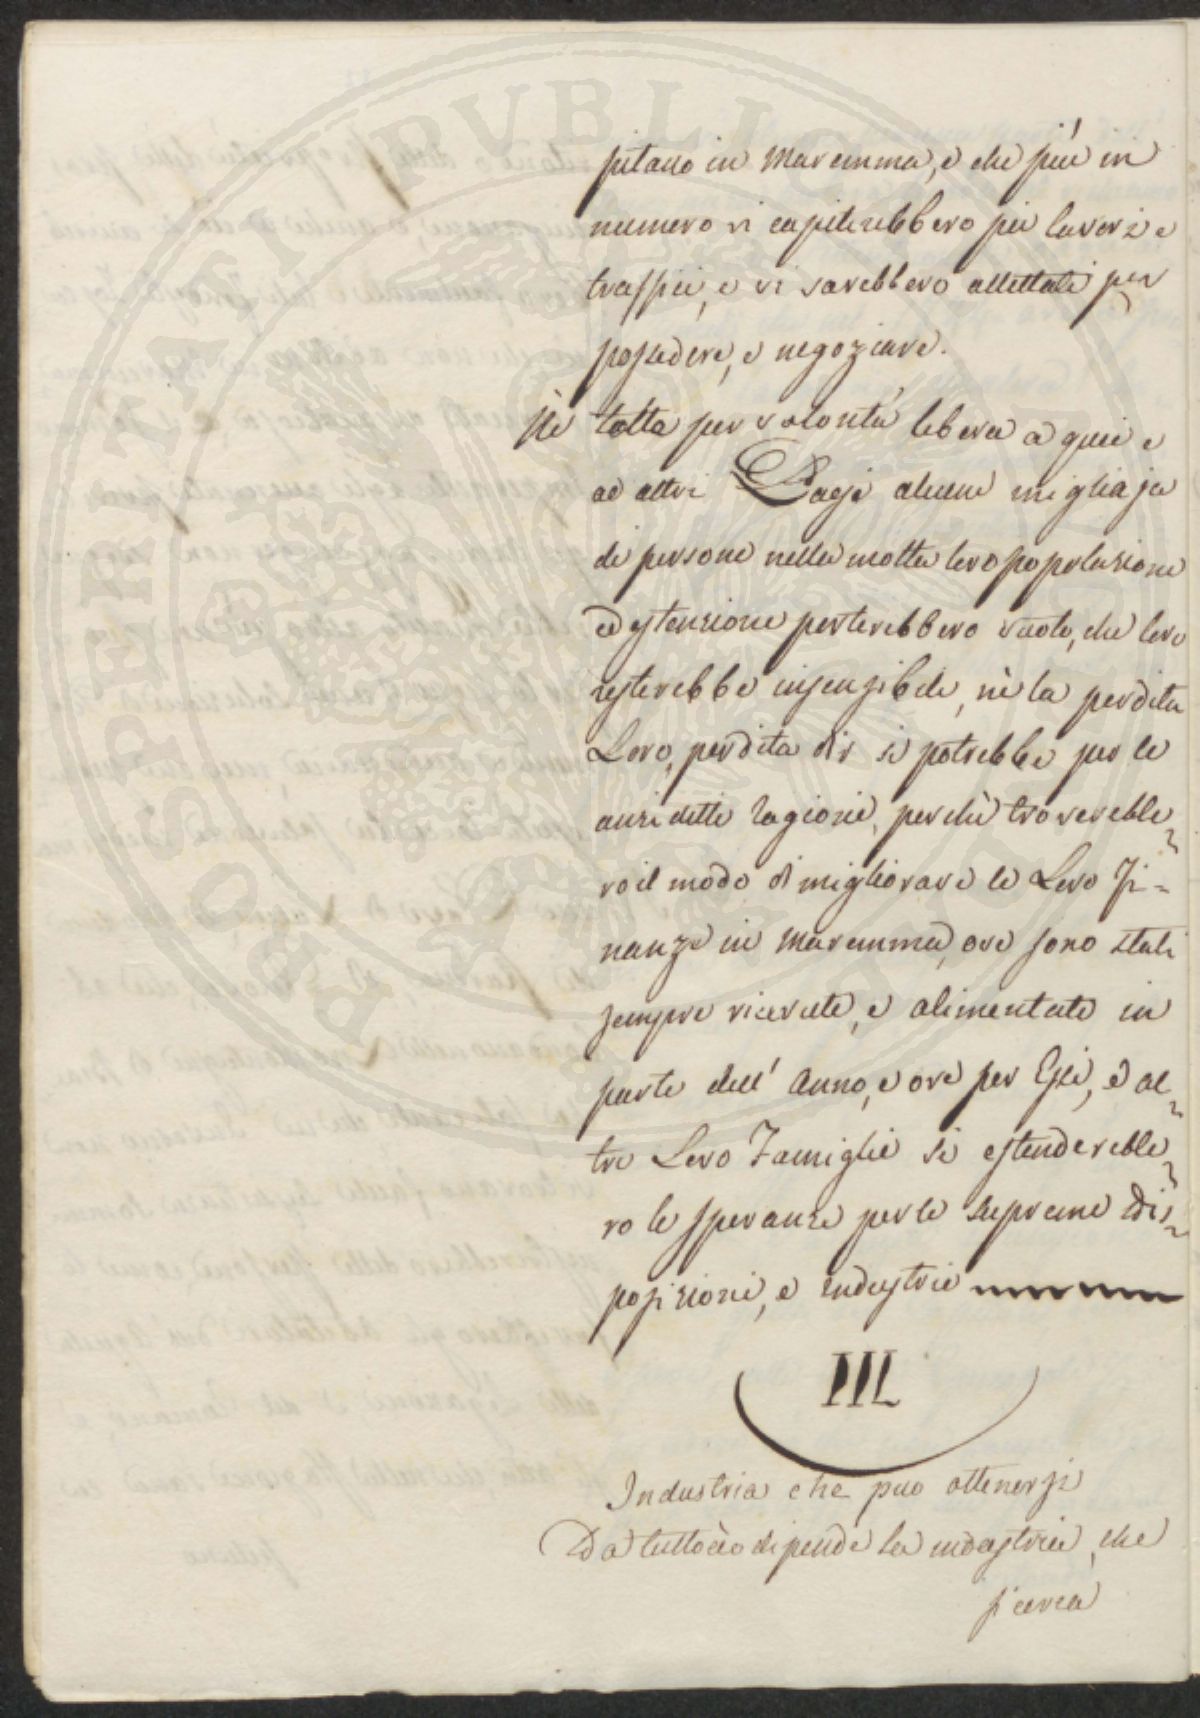 pitano in Maremma, e che più in
numero vi capiterebbero pei lavori e
traffici, e vi sarebbero allettati per
possedere, e negoziare.
Nè tolta per volontà libera a quei e
ad altri Paesi alcune migliaja
di persone nella molta loro popolazione
ed estenzione porterebbero vuoto, che loro
resterebbe insensibile, nè la perdita
Loro, perdita dir si potrebbe per le
anzidette ragioni, perchè troverebbe„
ro il modo di migliorare le Loro Fi=
nanze in Maremma, ove sono stati
sempre ricevute, e alimentate in
parte dell' Anno, e ove per Essi, e al„
tre Loro Famiglie si estenderebbe„
ro le speranze per le supreme Dis„
posizioni, e industrie
III.
Industria che può ottenersi
Da tuttociò dipende la industria, che
si cerca
PROSPERITATI PVBLICAE